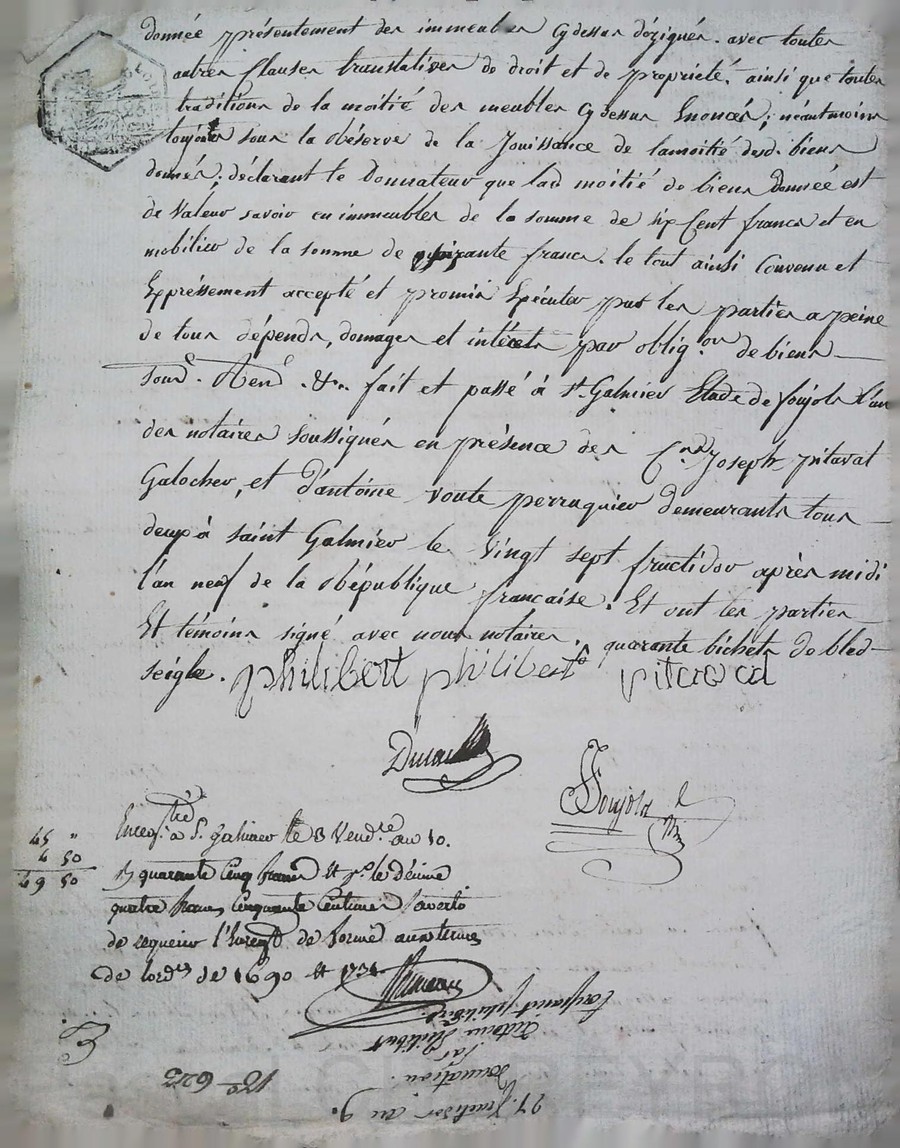 donnée présentement des immeubles cy dessus dézignés. avec toutes
autres Clauses translatives de droit et de proprieté. ainsi que toutes
traditions de la moitié des meubles cy dessus Enoncés; néantmoins
toujours sous la Réserve de la Jouissance de la moitié desd. biens
donnés. déclarant le Donnateur que lad moitié de biens Donnée est
de Valeur savoir en immeubles de la somme de six Cent francs et en
mobilier de la somme de francs. le tout ainsi Convenu et
Expréssement accepté et promis Exécuter par les parties a peine
de tous dépends, domages et intérets par oblig.on de biens
soud. Rend &c. fait et passé à st. Galmier Etude de foujols l'un
des notaires soussignés en présence des C.ens Joseph pitaval
Galocher, et d'antoine voute perruquier demeurants tous
deux à saint Galmier le Vingt sept fructidor après midi
l'an neuf de la République française. Et ont les parties
Et témoins signé avec nous notaires. quarante bichets de bled
seigle. philibert philibert pitaval
foujols
Enreg. à S. Galmier le 3 Vend.re an 10.
45 "
4 50
49 50
R quarante Cinq francs et p.r le décime
quatre francs Cinquante Centimes averti
de requerir l'Enreg.t de forme aux termes
de lord.ce de 1690 et 1731
27. fructidor an 9.
Donation.
par
Antoine Philibert
N.o 6273